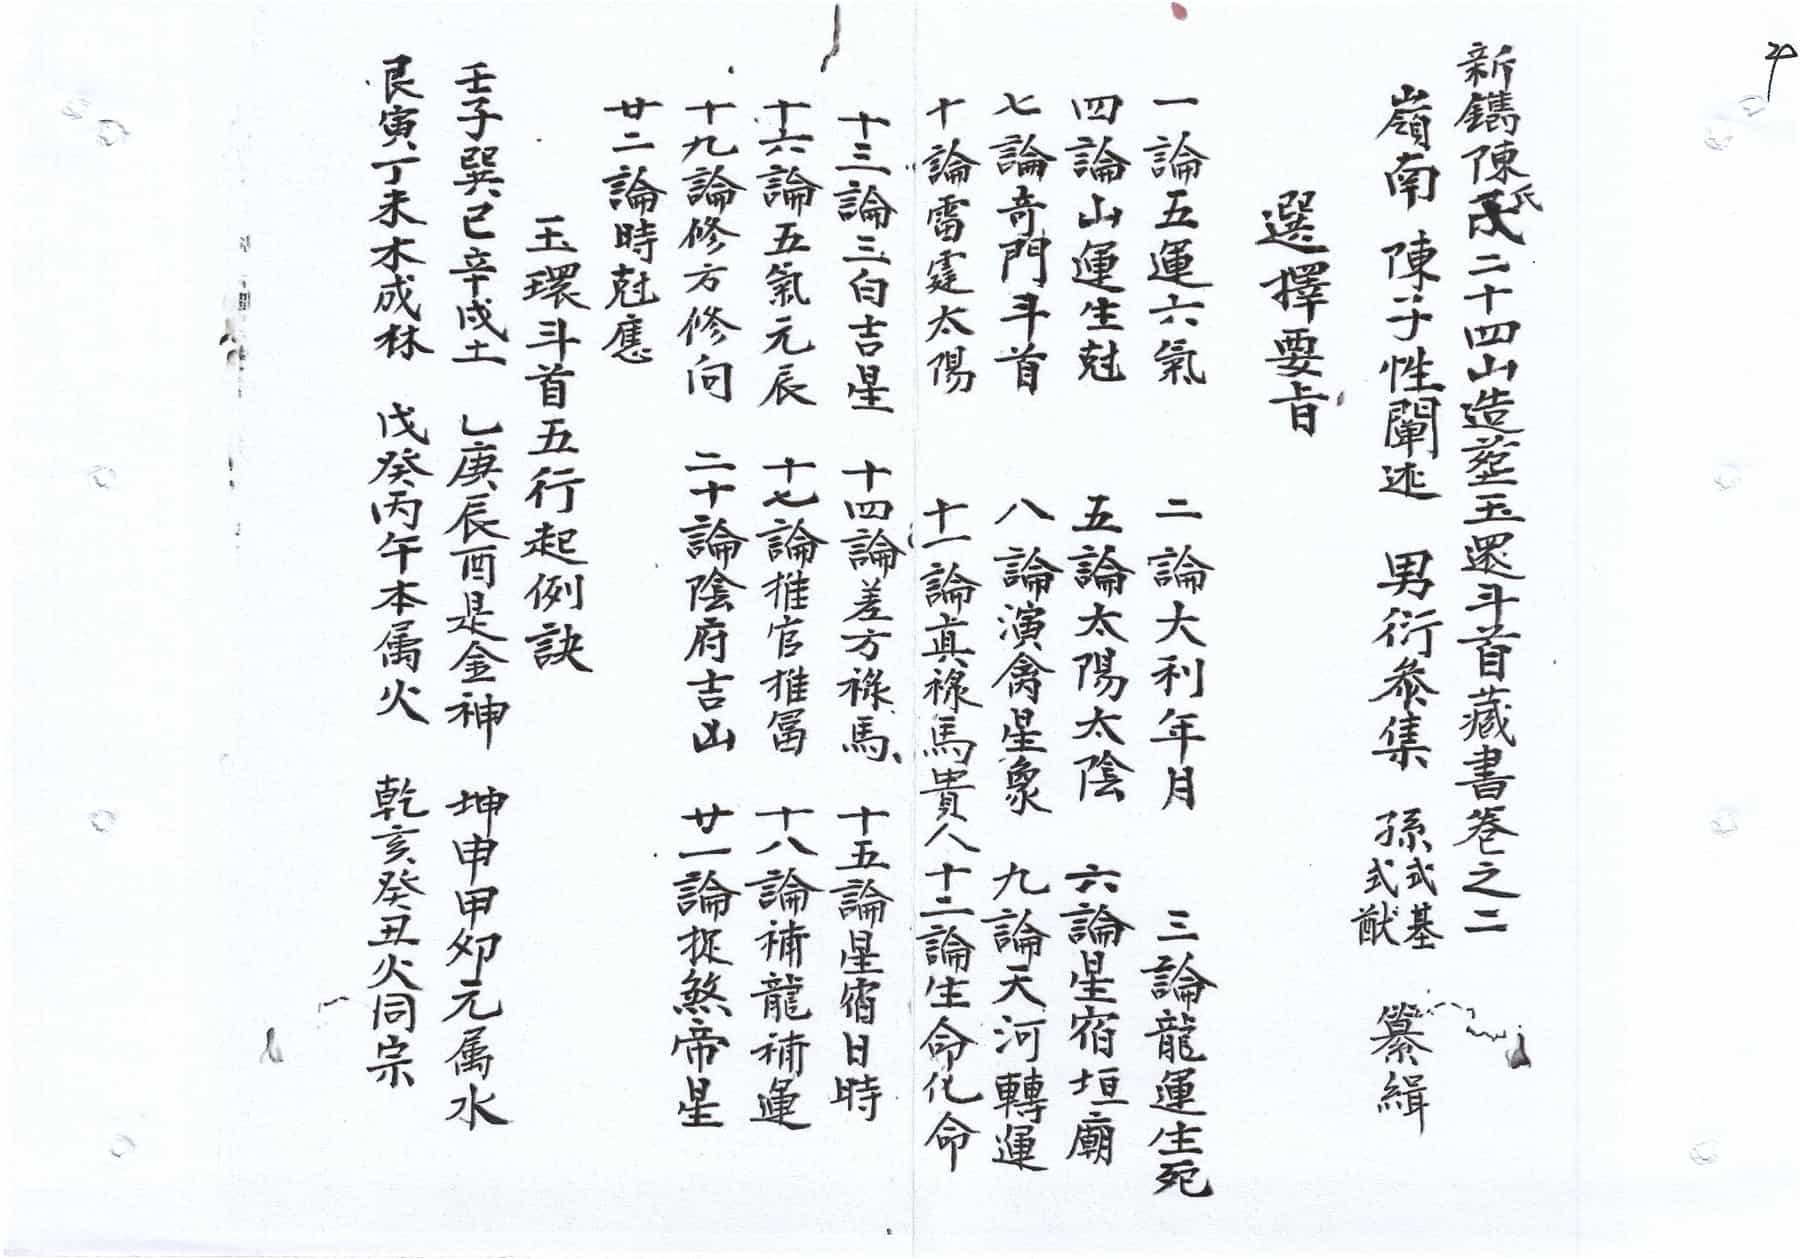 新鐫陳氏二十四山造塟玉還斗首藏書卷之二
嶺南 陳子性闡述 男衍參集 孫式基式猷 纂緝
選擇要旨
一論五運六氣 二論大利年月 三論龍運生死
四論山運生尅 五論太陽太陰 六論星宿垣廟
七論奇門斗首 八論演禽星象 九論天河轉運
十論雷霆太陽 十一論真祿馬貴人 十二論生命化命
十三論三白吉星 十四論差方祿馬、 十五論星宿日時
十六論五氣元辰 十七論推官推冨 十八論補龍補運
十九論修方修向 二十論陰府吉凶 廿一論捉煞帝星
廿二論時尅應
玉環斗首五行起例訣
壬子巽巳辛戌土 乙庚辰酉是金神 坤申甲卯元属水
艮寅丁未木成林 戊癸丙午本属火 乾亥癸丑火同宗